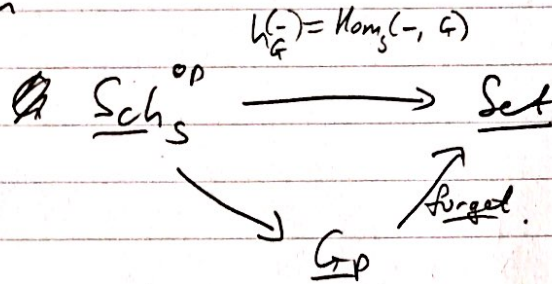 h_G(-) = Hom_S(-, G)
Sch_S^op → Set
forget.
Gp